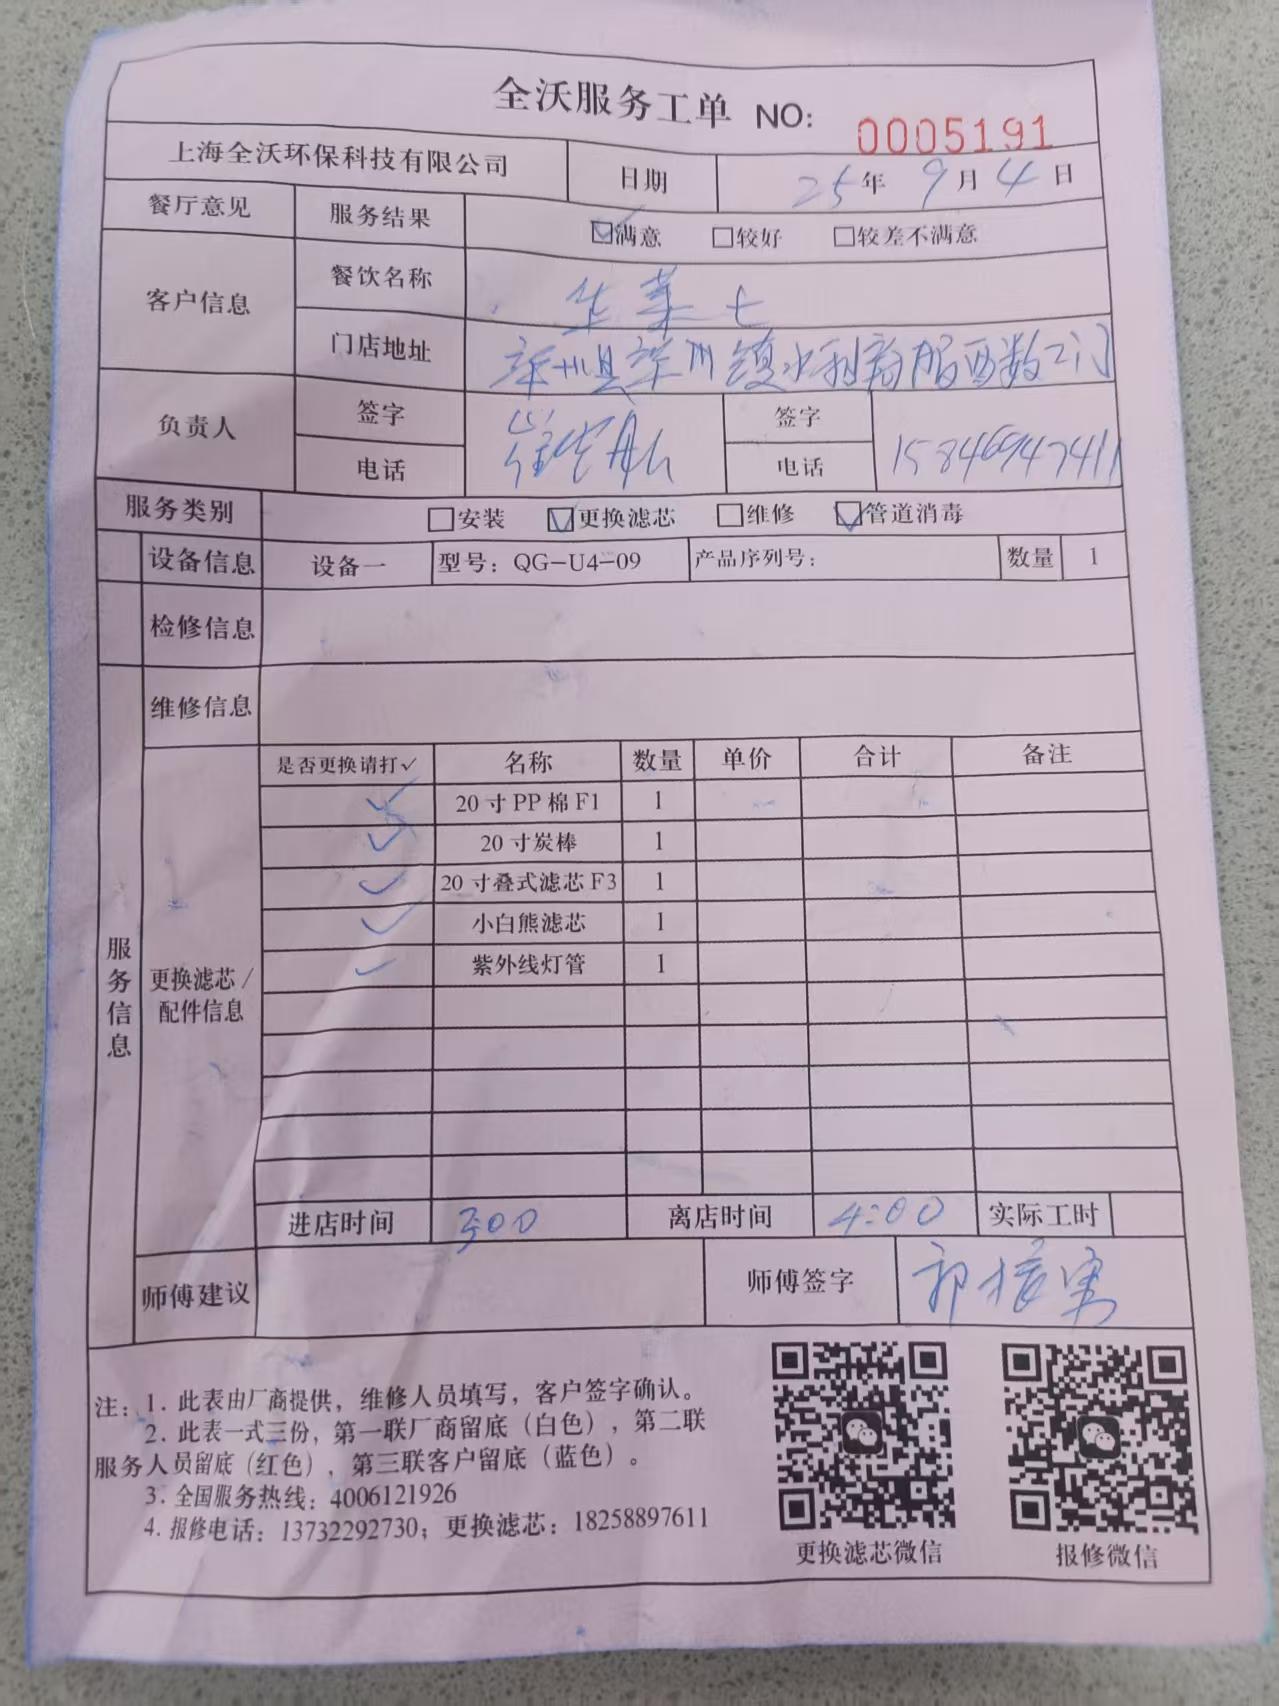 全沃服务工单 NO: 0005191
上海全沃环保科技有限公司 日期 25年9月4日
餐厅意见 服务结果 ☑满意 □较好 □较差不满意
客户信息 餐饮名称 华莱士
门店地址
负责人 签字 签字
电话 电话 15846947411
服务类别 □安装 ☑更换滤芯 □维修 ☑管道消毒
设备信息 设备一 型号：QG-U4-09 产品序列号： 数量 1
检修信息
维修信息
服务信息
更换滤芯/
配件信息
是否更换请打✓ 名称 数量 单价 合计 备注
✓ 20寸PP棉F1 1
✓ 20寸炭棒 1
✓ 20寸叠式滤芯F3 1
✓ 小白熊滤芯 1
✓ 紫外线灯管 1
进店时间 3:00 离店时间 4:00 实际工时
师傅建议 师傅签字
注：1. 此表由厂商提供，维修人员填写，客户签字确认。
2. 此表一式三份，第一联厂商留底（白色），第二联
服务人员留底（红色），第三联客户留底（蓝色）。
3. 全国服务热线：4006121926
4. 报修电话：13732292730；更换滤芯：18258897611
更换滤芯微信 报修微信